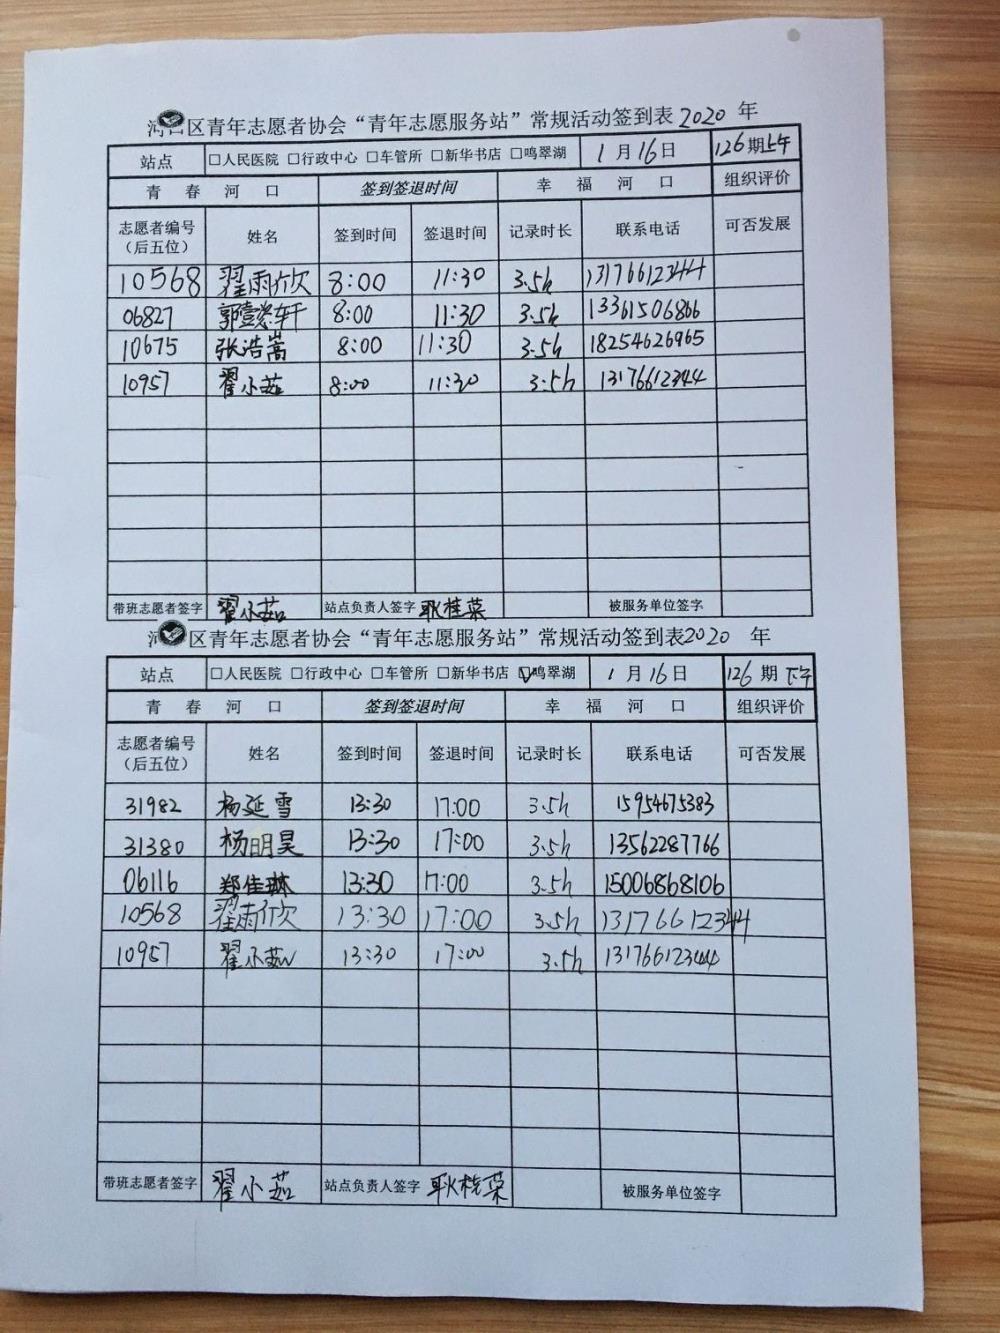 河口区青年志愿者协会“青年志愿服务站”常规活动签到表2020 年
站点 □人民医院 □行政中心 □车管所 □新华书店 □鸣翠湖 1 月 16 日 126 期上午
青 春 河 口 签到签退时间 幸 福 河 口 组织评价
志愿者编号（后五位） 姓名 签到时间 签退时间 记录时长 联系电话 可否发展
10568 翟雨欣 8:00 11:30 3.5h 13176612344
06827 郭懿轩 8:00 11:30 3.5h 13361506866
10675 张浩嵩 8:00 11:30 3.5h 18254626965
10957 翟小茹 8:00 11:30 3.5h 13176612344
带班志愿者签字 翟小茹 站点负责人签字 耿桂荣 被服务单位签字
河口区青年志愿者协会“青年志愿服务站”常规活动签到表2020 年
站点 □人民医院 □行政中心 □车管所 □新华书店 ☑鸣翠湖 1 月 16 日 126 期 下午
青 春 河 口 签到签退时间 幸 福 河 口 组织评价
志愿者编号（后五位） 姓名 签到时间 签退时间 记录时长 联系电话 可否发展
31982 杨延雪 13:30 17:00 3.5h 15954675383
31380 杨明昊 13:30 17:00 3.5h 13562287766
06116 郑佳琳 13:30 17:00 3.5h 15006868106
10568 翟雨欣 13:30 17:00 3.5h 13176612344
10957 翟小茹 13:30 17:00 3.5h 13176612344
带班志愿者签字 翟小茹 站点负责人签字 耿桂荣 被服务单位签字